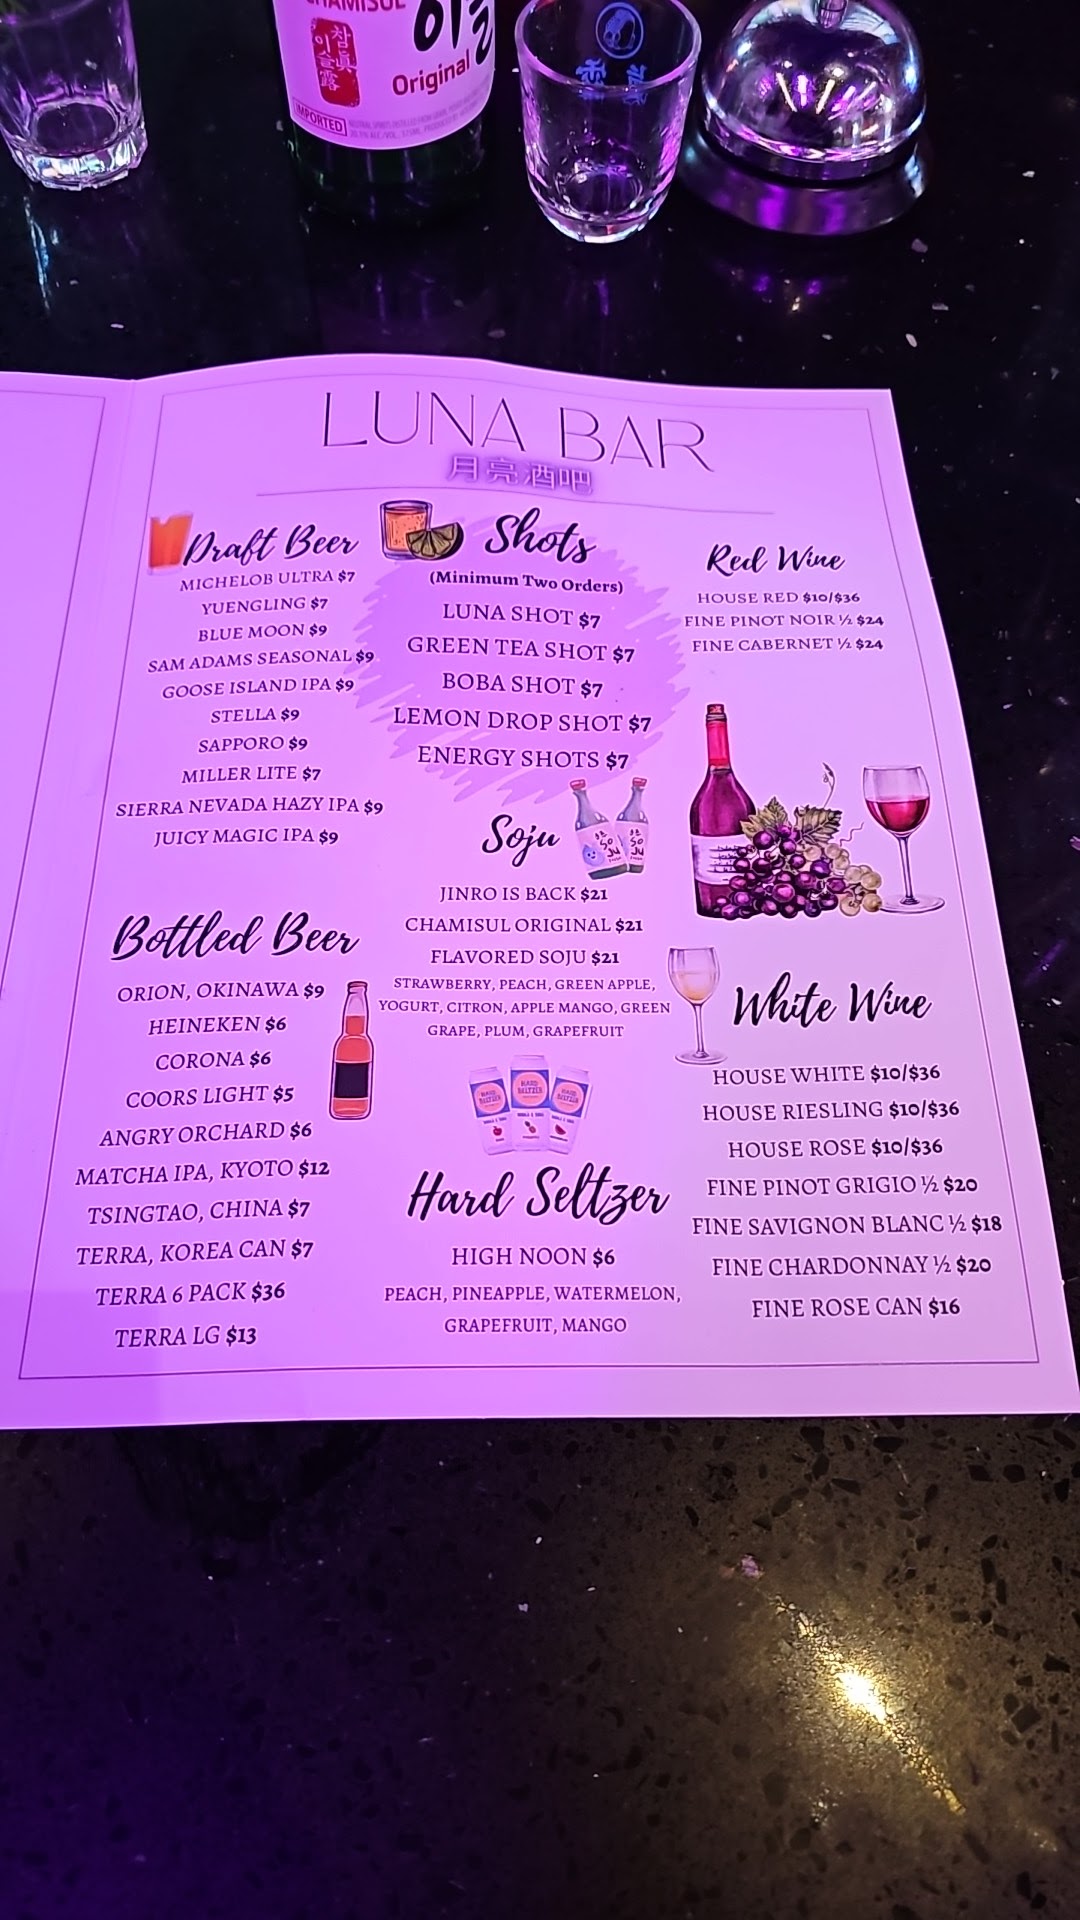 CHAMISUL
참眞
이슬露
Original
IMPORTED
LUNA BAR
月亮酒吧
Draft Beer
MICHELOB ULTRA $7
YUENGLING $7
BLUE MOON $9
SAM ADAMS SEASONAL $9
GOOSE ISLAND IPA $9
STELLA $9
SAPPORO $9
MILLER LITE $7
SIERRA NEVADA HAZY IPA $9
JUICY MAGIC IPA $9
Bottled Beer
ORION, OKINAWA $9
HEINEKEN $6
CORONA $6
COORS LIGHT $5
ANGRY ORCHARD $6
MATCHA IPA, KYOTO $12
TSINGTAO, CHINA $7
TERRA, KOREA CAN $7
TERRA 6 PACK $36
TERRA LG $13
Shots
(Minimum Two Orders)
LUNA SHOT $7
GREEN TEA SHOT $7
BOBA SHOT $7
LEMON DROP SHOT $7
ENERGY SHOTS $7
Soju
SO
JU
SO
JU
JINRO IS BACK $21
CHAMISUL ORIGINAL $21
FLAVORED SOJU $21
STRAWBERRY, PEACH, GREEN APPLE,
YOGURT, CITRON, APPLE MANGO, GREEN
GRAPE, PLUM, GRAPEFRUIT
HARD
SELTZER
HARD
SELTZER
HARD
SELTZER
Hard Seltzer
HIGH NOON $6
PEACH, PINEAPPLE, WATERMELON,
GRAPEFRUIT, MANGO
Red Wine
HOUSE RED $10/$36
FINE PINOT NOIR ½ $24
FINE CABERNET ½ $24
White Wine
HOUSE WHITE $10/$36
HOUSE RIESLING $10/$36
HOUSE ROSE $10/$36
FINE PINOT GRIGIO ½ $20
FINE SAVIGNON BLANC ½ $18
FINE CHARDONNAY ½ $20
FINE ROSE CAN $16